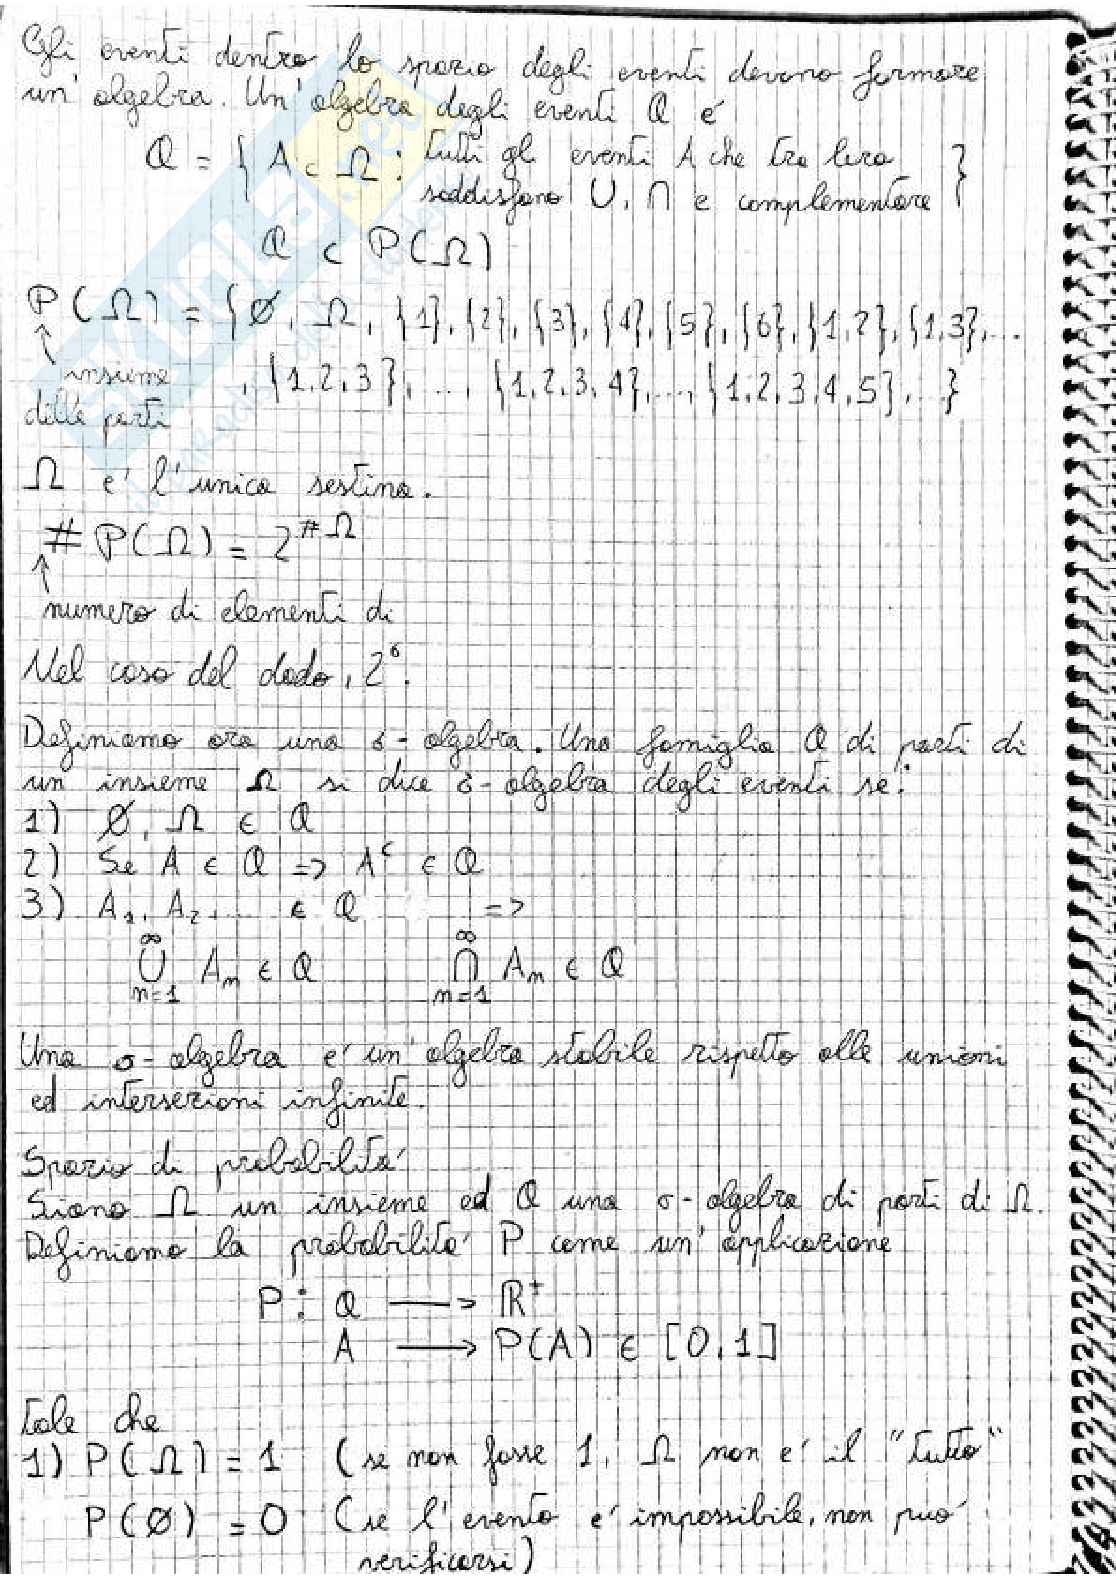 Gli eventi dentro lo spazio degli eventi devono formare
un' algebra. Un' algebra degli eventi Q é
Q = { A ⊂ Ω : tutti gli eventi A che tra loro
soddisfano ∪, ∩ e complementare }
Q ⊂ P(Ω)
P(Ω) = {∅, Ω, {1}, {2}, {3}, {4}, {5}, {6}, {1,2}, {1,3}, ...
↑ insieme , {1,2,3}, ..., {1,2,3,4}, ..., {1,2,3,4,5}, ...}
delle parti
Ω e' l'unica sestina.
# P(Ω) = 2^#Ω
↑
numero di elementi di
Nel caso del dado, 2^6.
Definiamo ora una σ-algebra. Una famiglia Q di parti di
un insieme Ω si dice σ-algebra degli eventi se:
1) ∅, Ω ∈ Q
2) Se A ∈ Q => A^c ∈ Q
3) A_1, A_2, ... ∈ Q =>
∞ ∞
∪ A_n ∈ Q ∩ A_n ∈ Q
n=1 n=1
Una σ-algebra e' un' algebra stabile rispetto alle unioni
ed intersezioni infinite.
Spazio di probabilita'
Siano Ω un insieme ed Q una σ-algebra di parti di Ω.
Definiamo la probabilita' P come un' applicazione
P : Q —> R^+
A —> P(A) ∈ [0,1]
tale che
1) P(Ω) = 1 (se non fosse 1, Ω non e' il "tutto"
P(∅) = 0 (se l'evento e' impossibile, non puo'
verificarsi)
SKUOLA.net